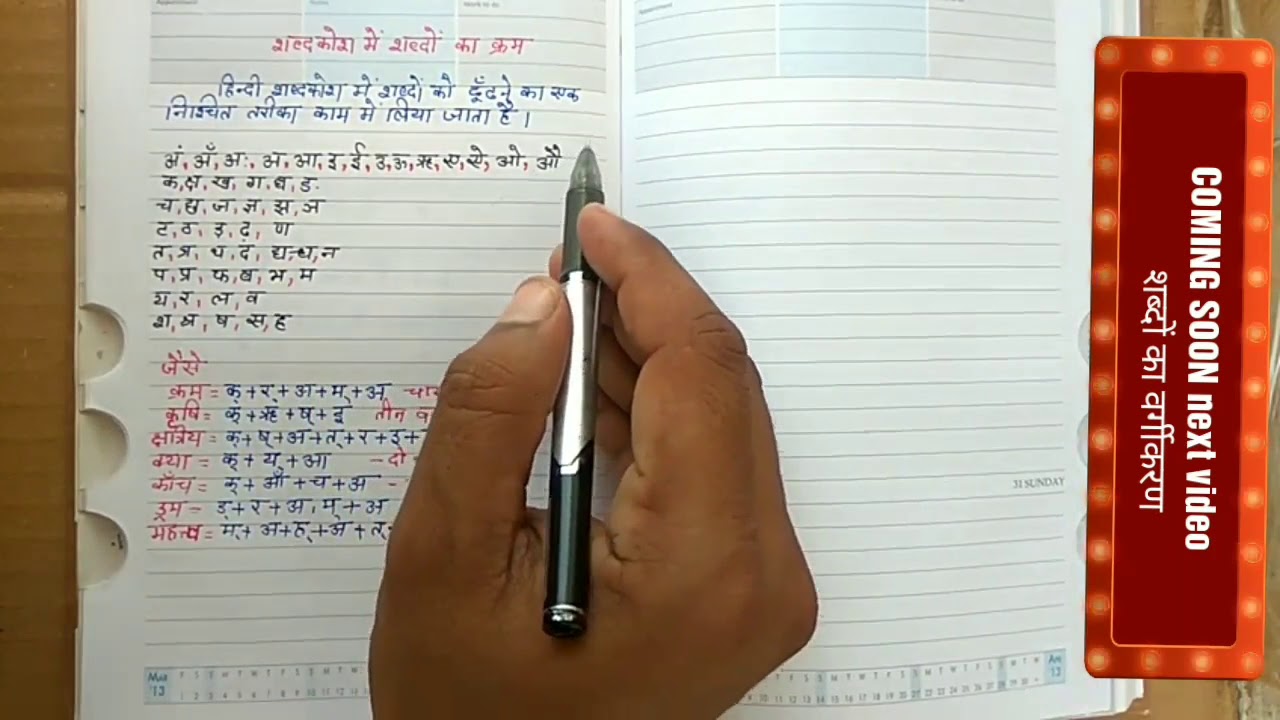 शब्दकोश में शब्दों का क्रम
हिन्दी शब्दकोश में शब्दों को ढूँढने का एक
निश्चित तरीका काम में लिया जाता है।
अं, अँ, अः, अ, आ, इ, ई, उ, ऊ, ऋ, ए, ऐ, ओ, औ
क, क्ष, ख, ग, घ, ङ
च, छ, ज, ज्ञ, झ, ञ
ट, ठ, ड, ढ, ण
त, त्र, थ, द, द्य, ध, न
प, प्र, फ, ब, भ, म
य, र, ल, व
श, श्र, ष, स, ह
जैसे
क्रम = क् + र् + अ + म् + अ
कृषि = क् + ऋ + ष् + इ तीन
क्षत्रिय = क् + ष् + अ + त् + र + इ +
क्या = क् + य् + आ - दो
काँच = क् + आँ + च + अ -
ड्रम - ड् + र + अ, म् + अ
महत्त्व = म् + अ + ह् + अ + त्
31 SUNDAY
Mar '13
Apr 13
COMING SOON next video
शब्दों का वर्गीकरण